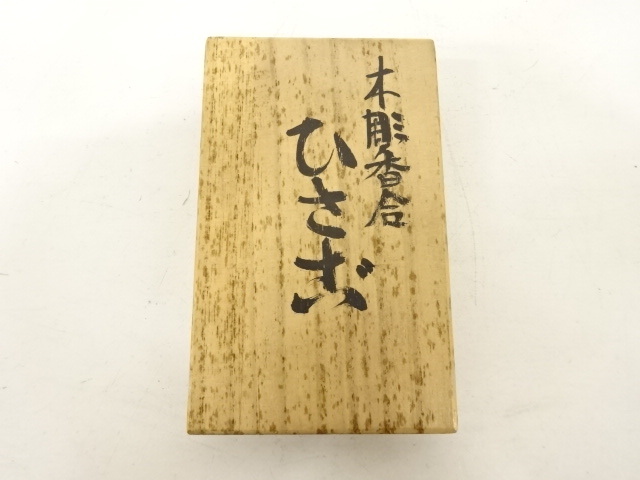 木彫香合
ひさご